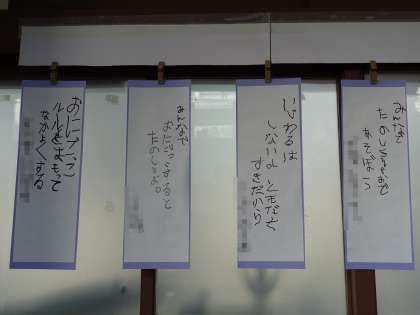 みんなと
あそぼう
いじわるは
しないよ ともだち
すきだから
みんなで
おにごっこすると
たのしいよ。
おにごっこ
ルールをまもって
なかよくする